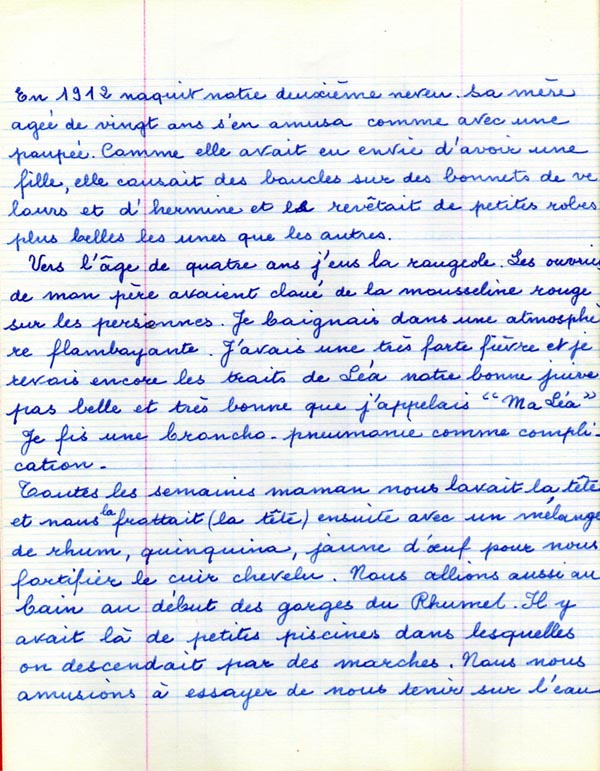 En 1912 naquit notre deuxième neveu. Sa mère
agée de vingt ans s'en amusa comme avec une
poupée. Comme elle avait eu envie d'avoir une
fille, elle cousait des boucles sur des bonnets de ve
lours et d'hermine et le revêtait de petites robes
plus belles les unes que les autres.
Vers l'âge de quatre ans j'eus la rougeole. Les ouvriers
de mon père avaient cloué de la mousseline rouge
sur les persiennes. Je baignais dans une atmosphè
re flambayante. J'avais une très forte fièvre et je
revois encore les traits de Léa notre bonne juive
pas belle et très bonne que j'appelais "Ma Léa"
Je fis une broncho-pneumonie comme compli-
cation.
Toutes les semaines maman nous lavait la tête
et nous la frottait (la tête) ensuite avec un mélange
de rhum, quinquina, jaune d'œuf pour nous
fortifier le cuir chevelu. Nous allions aussi au
bain au début des gorges du Rhumel. Il y
avait là de petites piscines dans lesquelles
on descendait par des marches. Nous nous
amusions à essayer de nous tenir sur l'eau